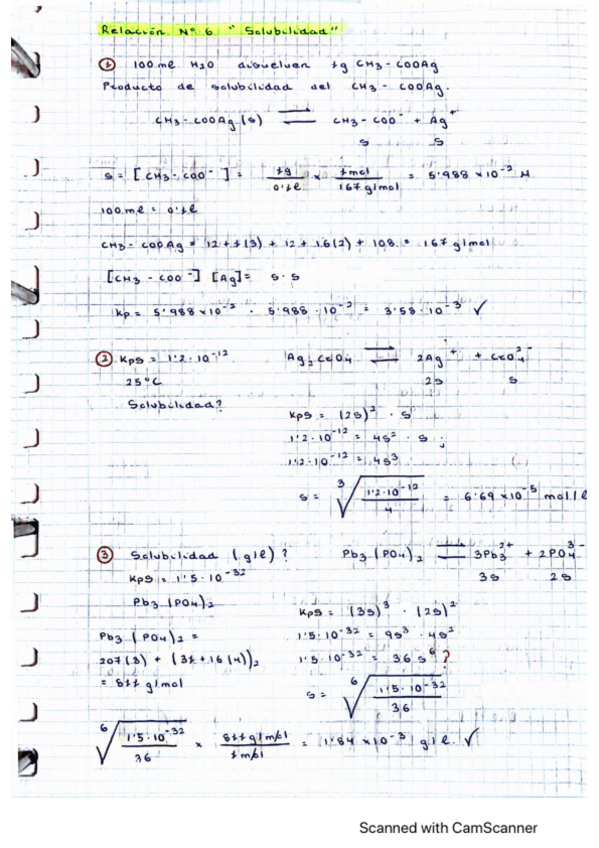 Relación Nº 6 "Solubilidad"
① 100 ml H2O disuelven 1g CH3-COOAg
Producto de solubilidad del CH3-COOAg.
CH3-COOAg(s) ⇌ CH3-COO⁻ + Ag⁺
s s
s = [CH3-COO⁻] = 1g/0'1l × 1mol/167 g/mol = 5'988 × 10⁻² M
100 ml = 0'1l
CH3-COOAg = 12 + 1(3) + 12 + 16(2) + 108 = 167 g/mol
[CH3-COO⁻] [Ag] = s · s
Kp = 5'988 × 10⁻² · 5'988 · 10⁻² = 3'58 · 10⁻³ ✓
② Kps = 1'2 · 10⁻¹² Ag2CrO4 ⇌ 2Ag⁺ + CrO4²⁻
25ºC 2s s
Solubilidad?
Kps = (2s)² · s
1'2 · 10⁻¹² = 4s² · s ;
1'2 · 10⁻¹² = 4s³
s = ³√(1'2 · 10⁻¹²/4) = 6'69 × 10⁻⁵ mol/l
③ Solubilidad (g/l)? Pb3(PO4)2 ⇌ 3Pb3²⁺ + 2PO4³⁻
Kps = 1'5 · 10⁻³² 3s 2s
Pb3(PO4)2
Kps = (3s)³ · (2s)²
Pb3(PO4)2 = 1'5 · 10⁻³² = 9s³ · 4s²
207(3) + (31 + 16(4))2 1'5 · 10⁻³² = 36 s⁶ ?
= 811 g/mol
s = ⁶√(1'5 · 10⁻³²/36)
⁶√(1'5 · 10⁻³²/36) × 811 g/mol/1 mol = 1'84 × 10⁻³ g/l. ✓
Scanned with CamScanner